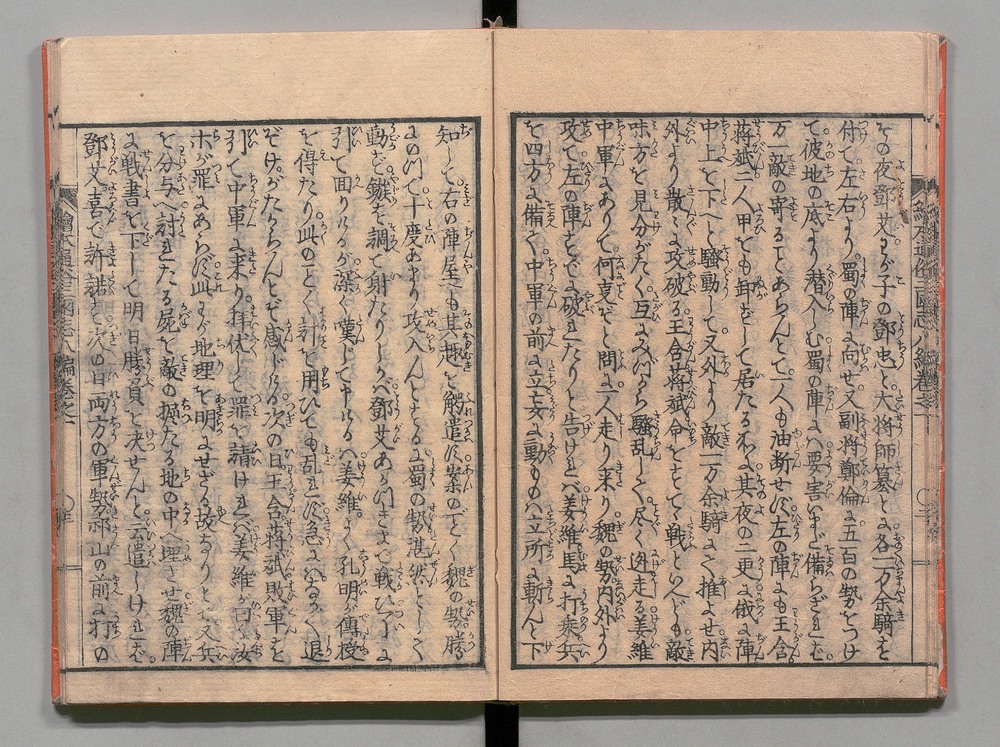 その夜鄧艾わが子の鄧忠と大将師纂とに各一万余騎を
付て左右より蜀の陣に向せ又副将鄭倫に五百の勢をつけ
て彼地の底より潜入しむ蜀の陣には要害いまだ備らざれば
万一敵の寄ることあらんとて一人も油断せず左の陣にも王含
蒋斌二人甲をも卸ずして居たるに其夜の二更に俄に陣
中上を下へと騒動して又外より敵一万余騎にて推よせ内
外より散々に攻破る王含蒋斌命をすてて戦といへども敵
味方を見分がたく互に騒乱して尽く迯走る姜維
中軍にありて何充ぞと問に人走り来り魏の勢内外より
攻て左の陣すでに破れたりと告ければ姜維馬に打乗兵
を四方に備へ中軍の前に立妄に動ものは立所に斬んと下
知して右の陣屋へも其趣を觸遣す案のごとく魏の勢勝
に乗て十度あまり攻入んとするに蜀の勢湛然として
動ず鏃を調て射たりしかば鄧艾あぐみ戦ひつひに
引て面りけるが深く嘆じて申けるは姜維よく孔明が傳授
を得たり此のごとく計を用ひても乱れず急には退
ぞけがたからんとぞ感じける次の日王含蒋斌敗軍を
引て中軍に来り拝伏して罪を請ければ姜維が曰く汝
ホが罪にあらず此わが地理を明にせざる故なりとて又兵
を分与へ討れたる屍を敵の掘たる地の中へ埋させ魏の陣
に戦書を下して明日勝負を決せんと云遣しければ
鄧艾喜て許諾し次の日両方の軍勢祁山の前に打の